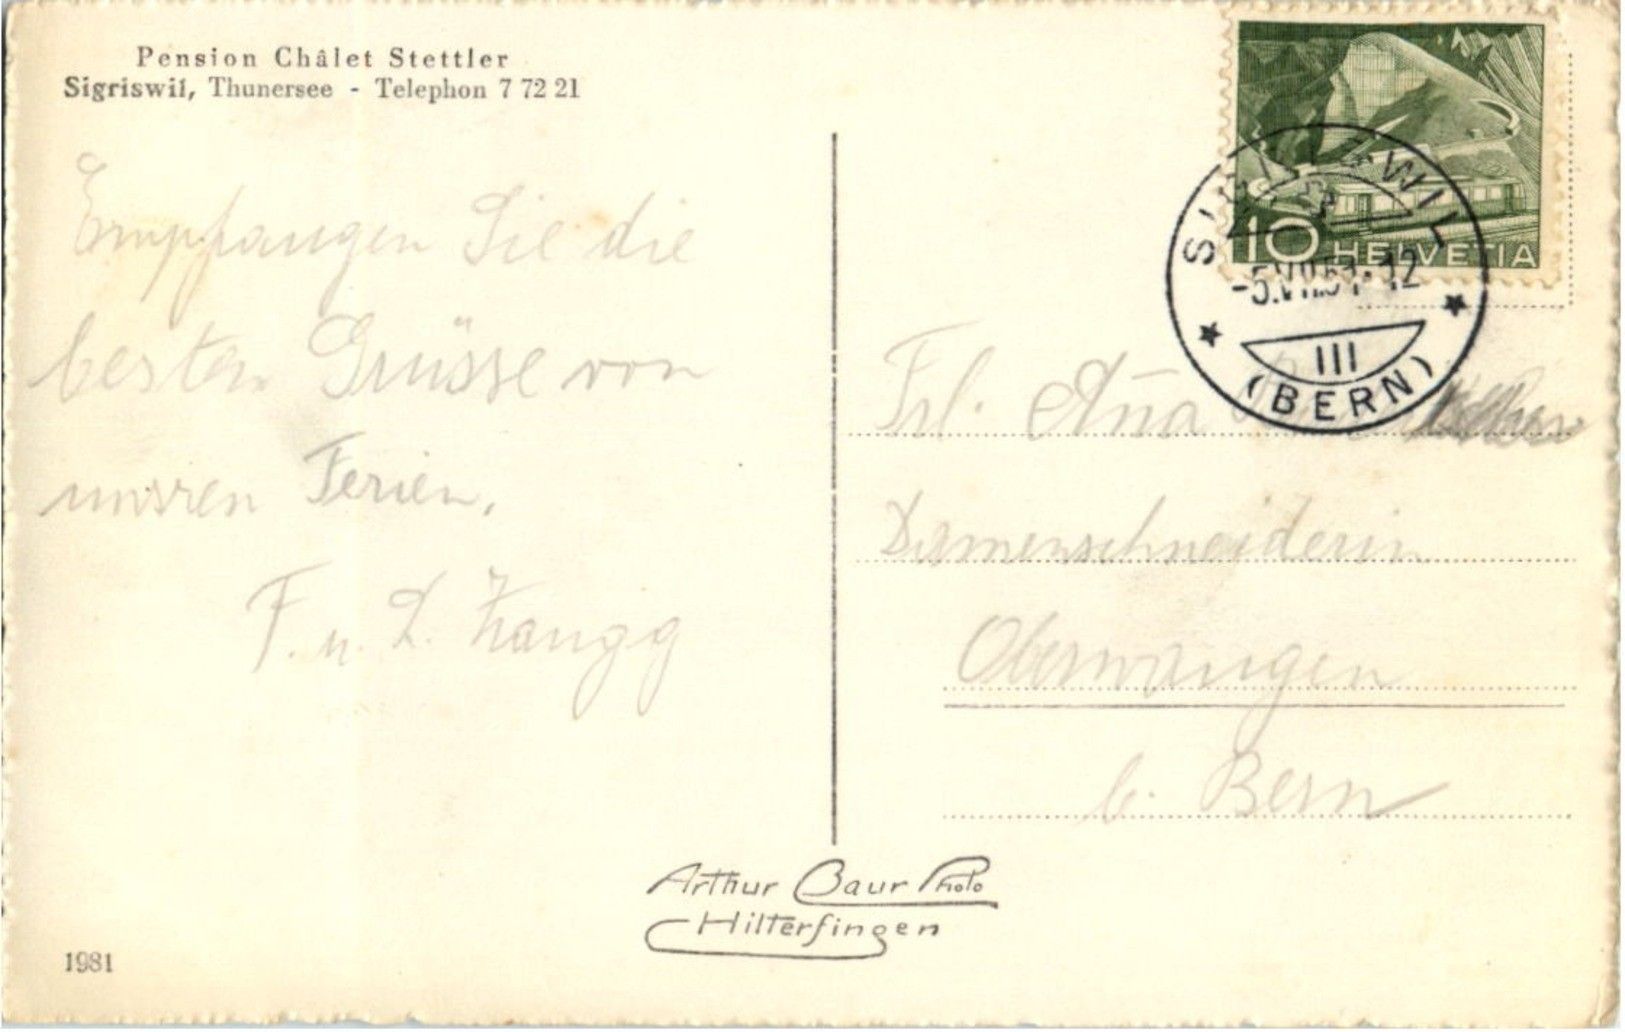 Pension Châlet Stettler
Sigriswil, Thunersee - Telephon 7 72 21
Empfangen Sie die
besten Grüsse von
unsren Ferien.
F. u. L. Zaugg
10 HELVETIA
SIGRISWIL
-5.VII.51-12
III
(BERN)
Frl. Aña
Damenschneiderin
Oberwangen
b. Bern
Arthur Baur Photo
Hilterfingen
1981